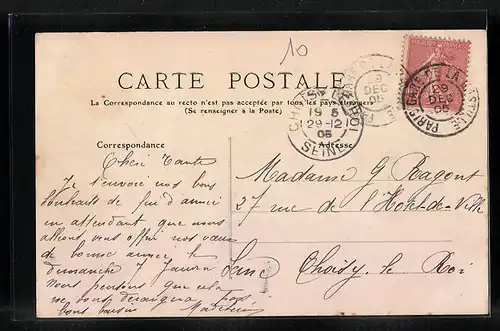 10
CARTE POSTALE
La Correspondance au recto n'est pas acceptée par tous les pays étrangers
(Se renseigner à la Poste)
Correspondance
Adresse
PARIS DE LA
29
DEC
05
CHOISY LE ROI
19 5
29-12
05
SEINE
Cheri Tante
Je t'envoie nos bons
souhaits de fin d'année
en attendant que nous
allions vous offrir nos vœux
de bonne année le
dimanche 7 Janvier
Nous pensons que cela
ne vous dérangera pas
bons baisers
Madame G. Ragout
27 rue de l'Hotel-de-Ville
Choisy le Roi